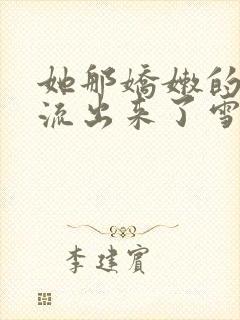 她那娇嫩的
流出来了雪
李建宾